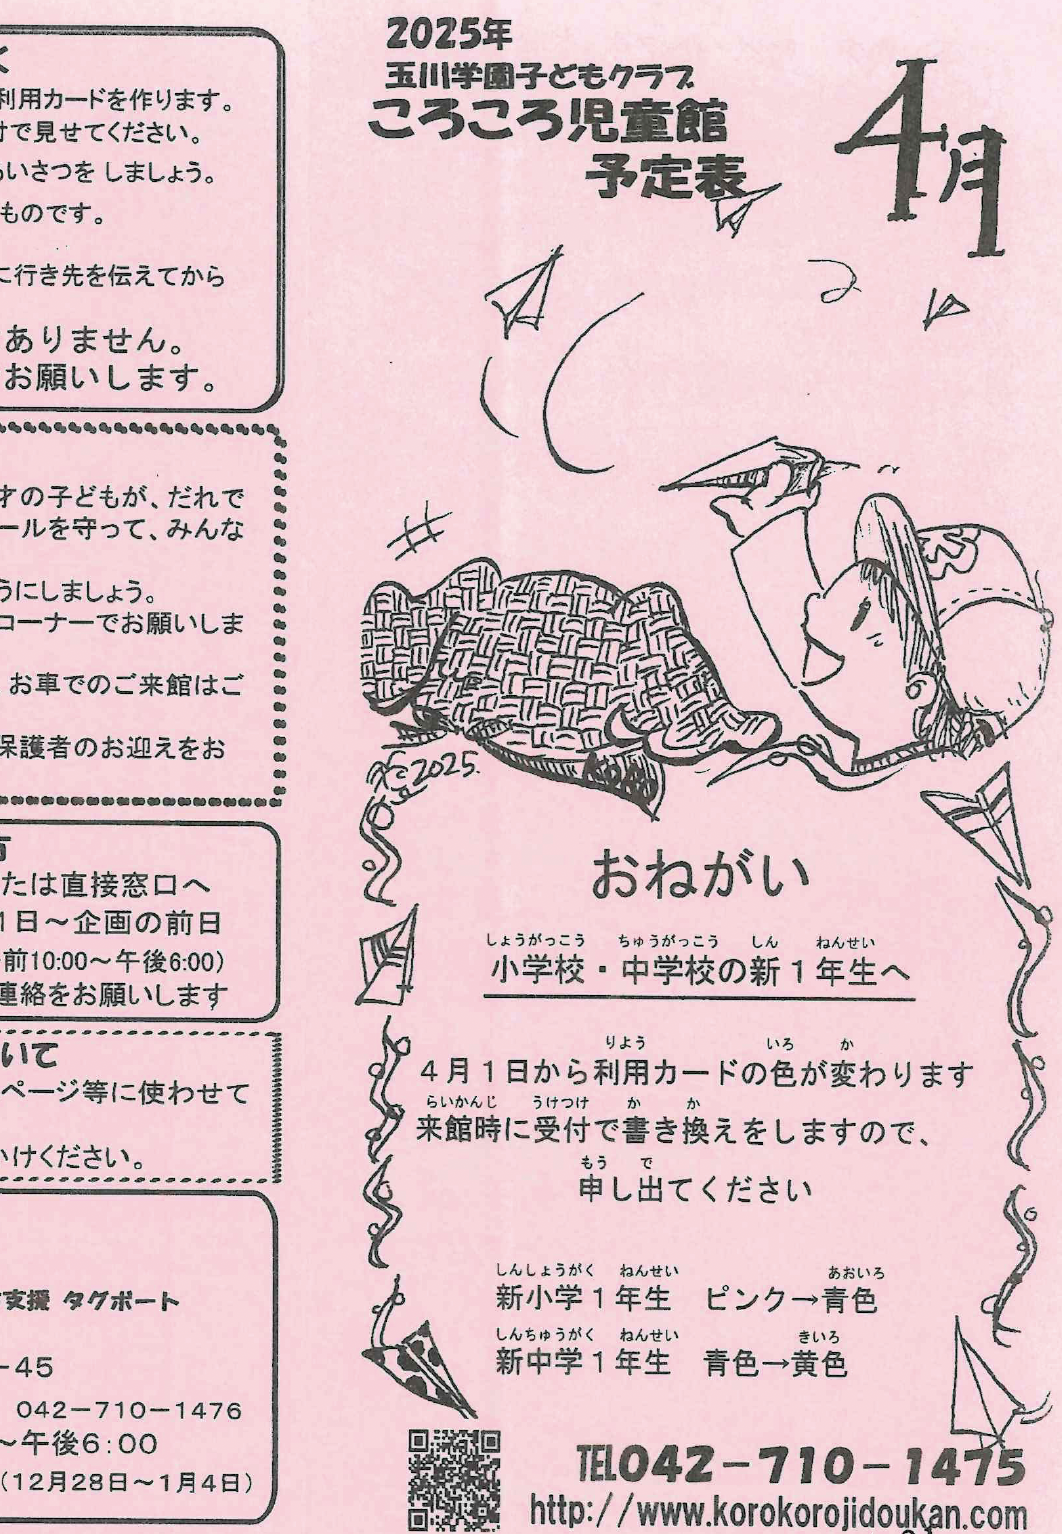 く
利用カードを作ります。
けで見せてください。
いさつを しましょう。
ものです。
に行き先を伝えてから
ありません。
お願いします。
才の子どもが、だれで
ールを守って、みんな
うにしましょう。
コーナーでお願いしま
お車でのご来館はご
保護者のお迎えをお
方
たは直接窓口へ
1日～企画の前日
前10:00～午後6:00)
連絡をお願いします
いて
ページ等に使わせて
いけください。
支援 タグボート
-45
042-710-1476
～午後6:00
(12月28日～1月4日)
2025年
玉川学園子どもクラブ
ころころ児童館
予定表
4月
2025.
KORO
おねがい
しょうがっこう ちゅうがっこう しん ねんせい
小学校・中学校の新1年生へ
りよう いろ か
4月1日から利用カードの色が変わります
らいかんじ うけつけ か か
来館時に受付で書き換えをしますので、
もう で
申し出てください
しんしょうがく ねんせい あおいろ
新小学1年生 ピンク→青色
しんちゅうがく ねんせい きいろ
新中学1年生 青色→黄色
TEL042-710-1475
http://www.korokorojidoukan.com